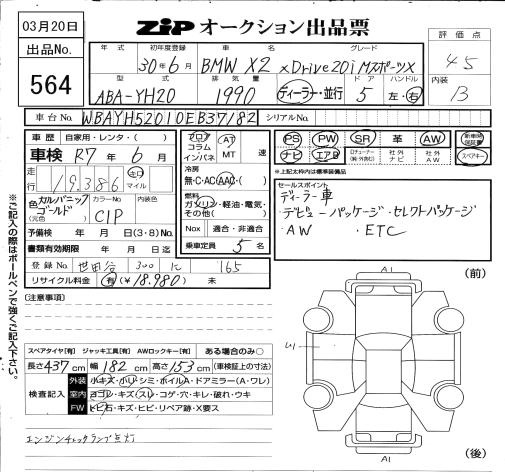 03月20日
出品No.
564
ZIP オークション出品票
評価点
4.5
内装
B
年式 初年度登録 車名 グレード
30年6月 BMW X2 xDrive20i MスポーツX
型式 排気量 ドア ハンドル
ABA-YH20 1990 ディーラー・並行 5 左・右
車台No. WBAYH52010EB37182 シリアルNo.
車歴 自家用・レンタ・( )
車検 R7年6月
走行 19,386 キロ マイル
色 カルバニックゴールド (元色) カラーNo. C1P 内装色
予備検 年 月 日(3・8)No.
書類有効期限 年 月 日迄
登録No. 世田谷 300 165
リサイクル料金 有(¥18,980) 未
フロア コラム インパネ AT MT 速
冷房 無・C・AC・AAC・( )
燃料 ガソリン・軽油・電気・その他( )
Nox 適合・非適合
乗車定員 5名
PS PW SR 革 AW 新車時保証書
ナビ エアB 社外ナビ 社外AW スペアキー
※上記太枠内は標準装備品
セールスポイント
ディーラー車
・デビューパッケージ・セレクトパッケージ
・AW ・ETC
※ご記入の際はボールペンで強くご記入下さい。
[注意事項]
スペアタイヤ[有] ジャッキ工具[有] AWロックキー[有] ある場合のみ○
長さ437cm 幅182cm 高さ153cm (車検証上の寸法)
検査記入
外装 小キズ・小リ・シミ・ホイルA・ドアミラー(A・ワレ)
室内 ヨゴレ・キズ・スレ・コゲ・穴・キレ・破れ・ウキ
FW ヒビ石・キズ・ヒビ・リペア跡・X要ス
エンジンチェックランプ点灯
A1
(前)
U1
A1
(後)